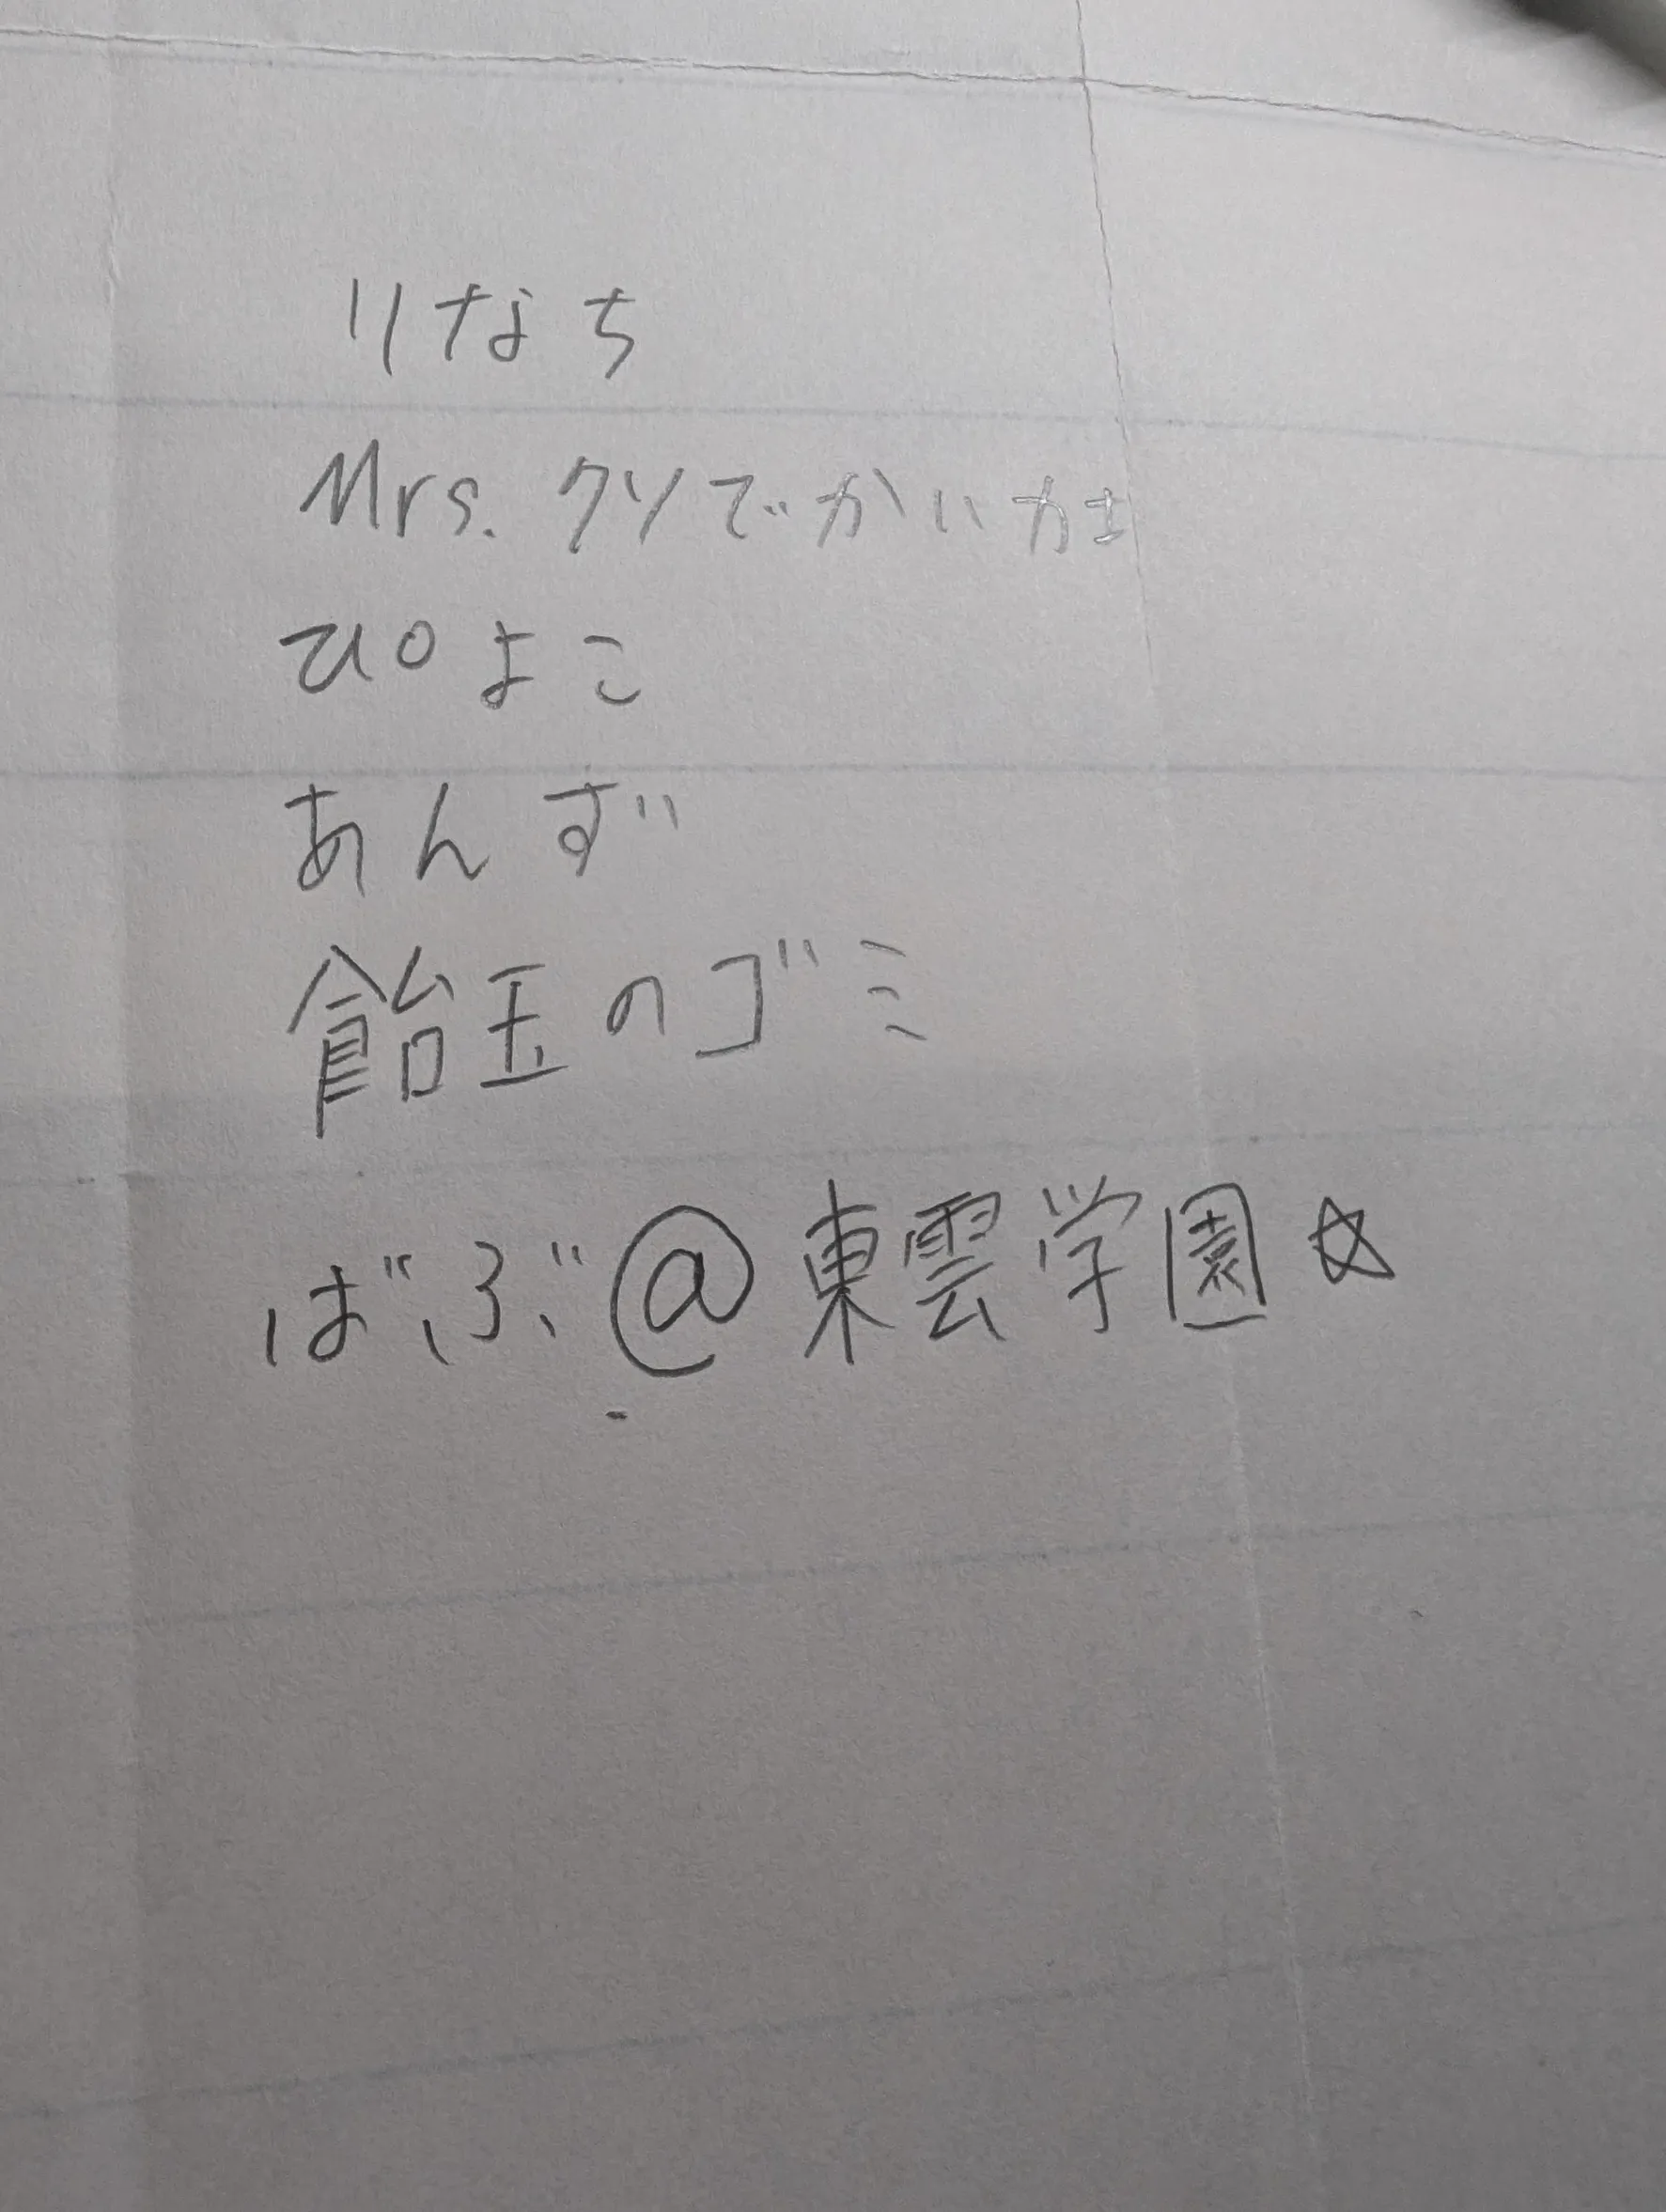 りなち
Mrs. クソでかいカ士
ぴよこ
あんず
飴玉のゴミ
ばぶ@東雲学園☆